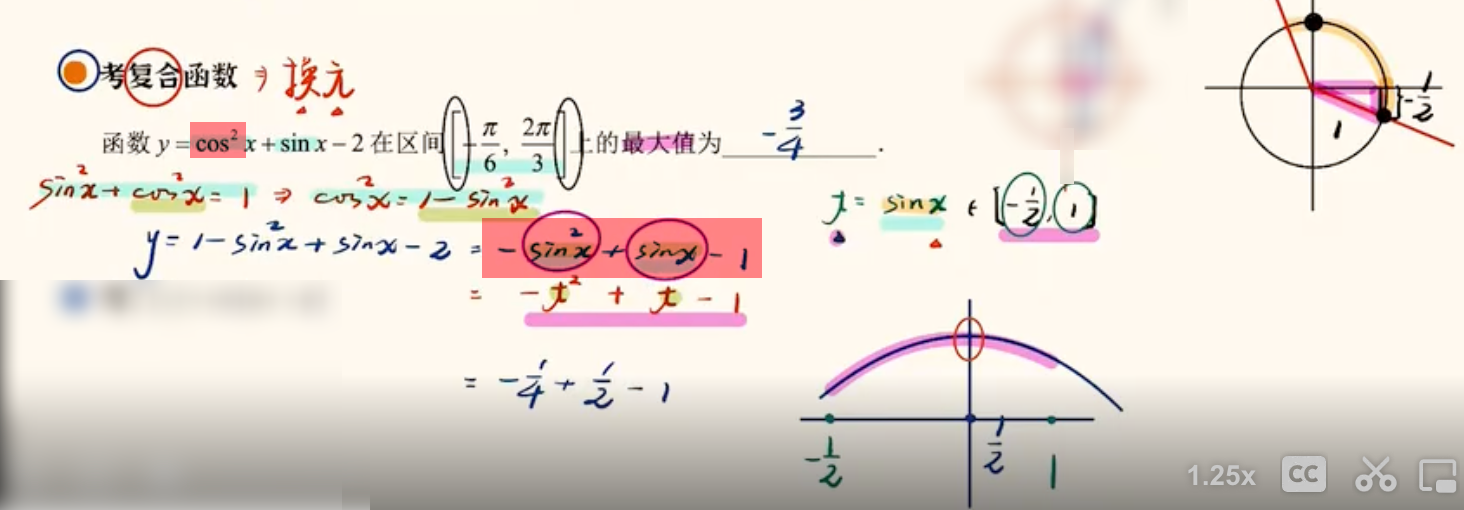 考复合函数 ⇒ 换元
函数 y = cos² x + sin x − 2 在区间 [−π/6, 2π/3] 上的最大值为 −3/4 .
sin²x + cos²x = 1 ⇒ cos²x = 1 − sin²x
t = sinx ∈ [−1/2, 1]
y = 1 − sin²x + sinx − 2 = − sin²x + sinx − 1
= − t² + t − 1
= − 1/4 + 1/2 − 1
−1/2 1/2 1
1 −1/2
1.25x CC